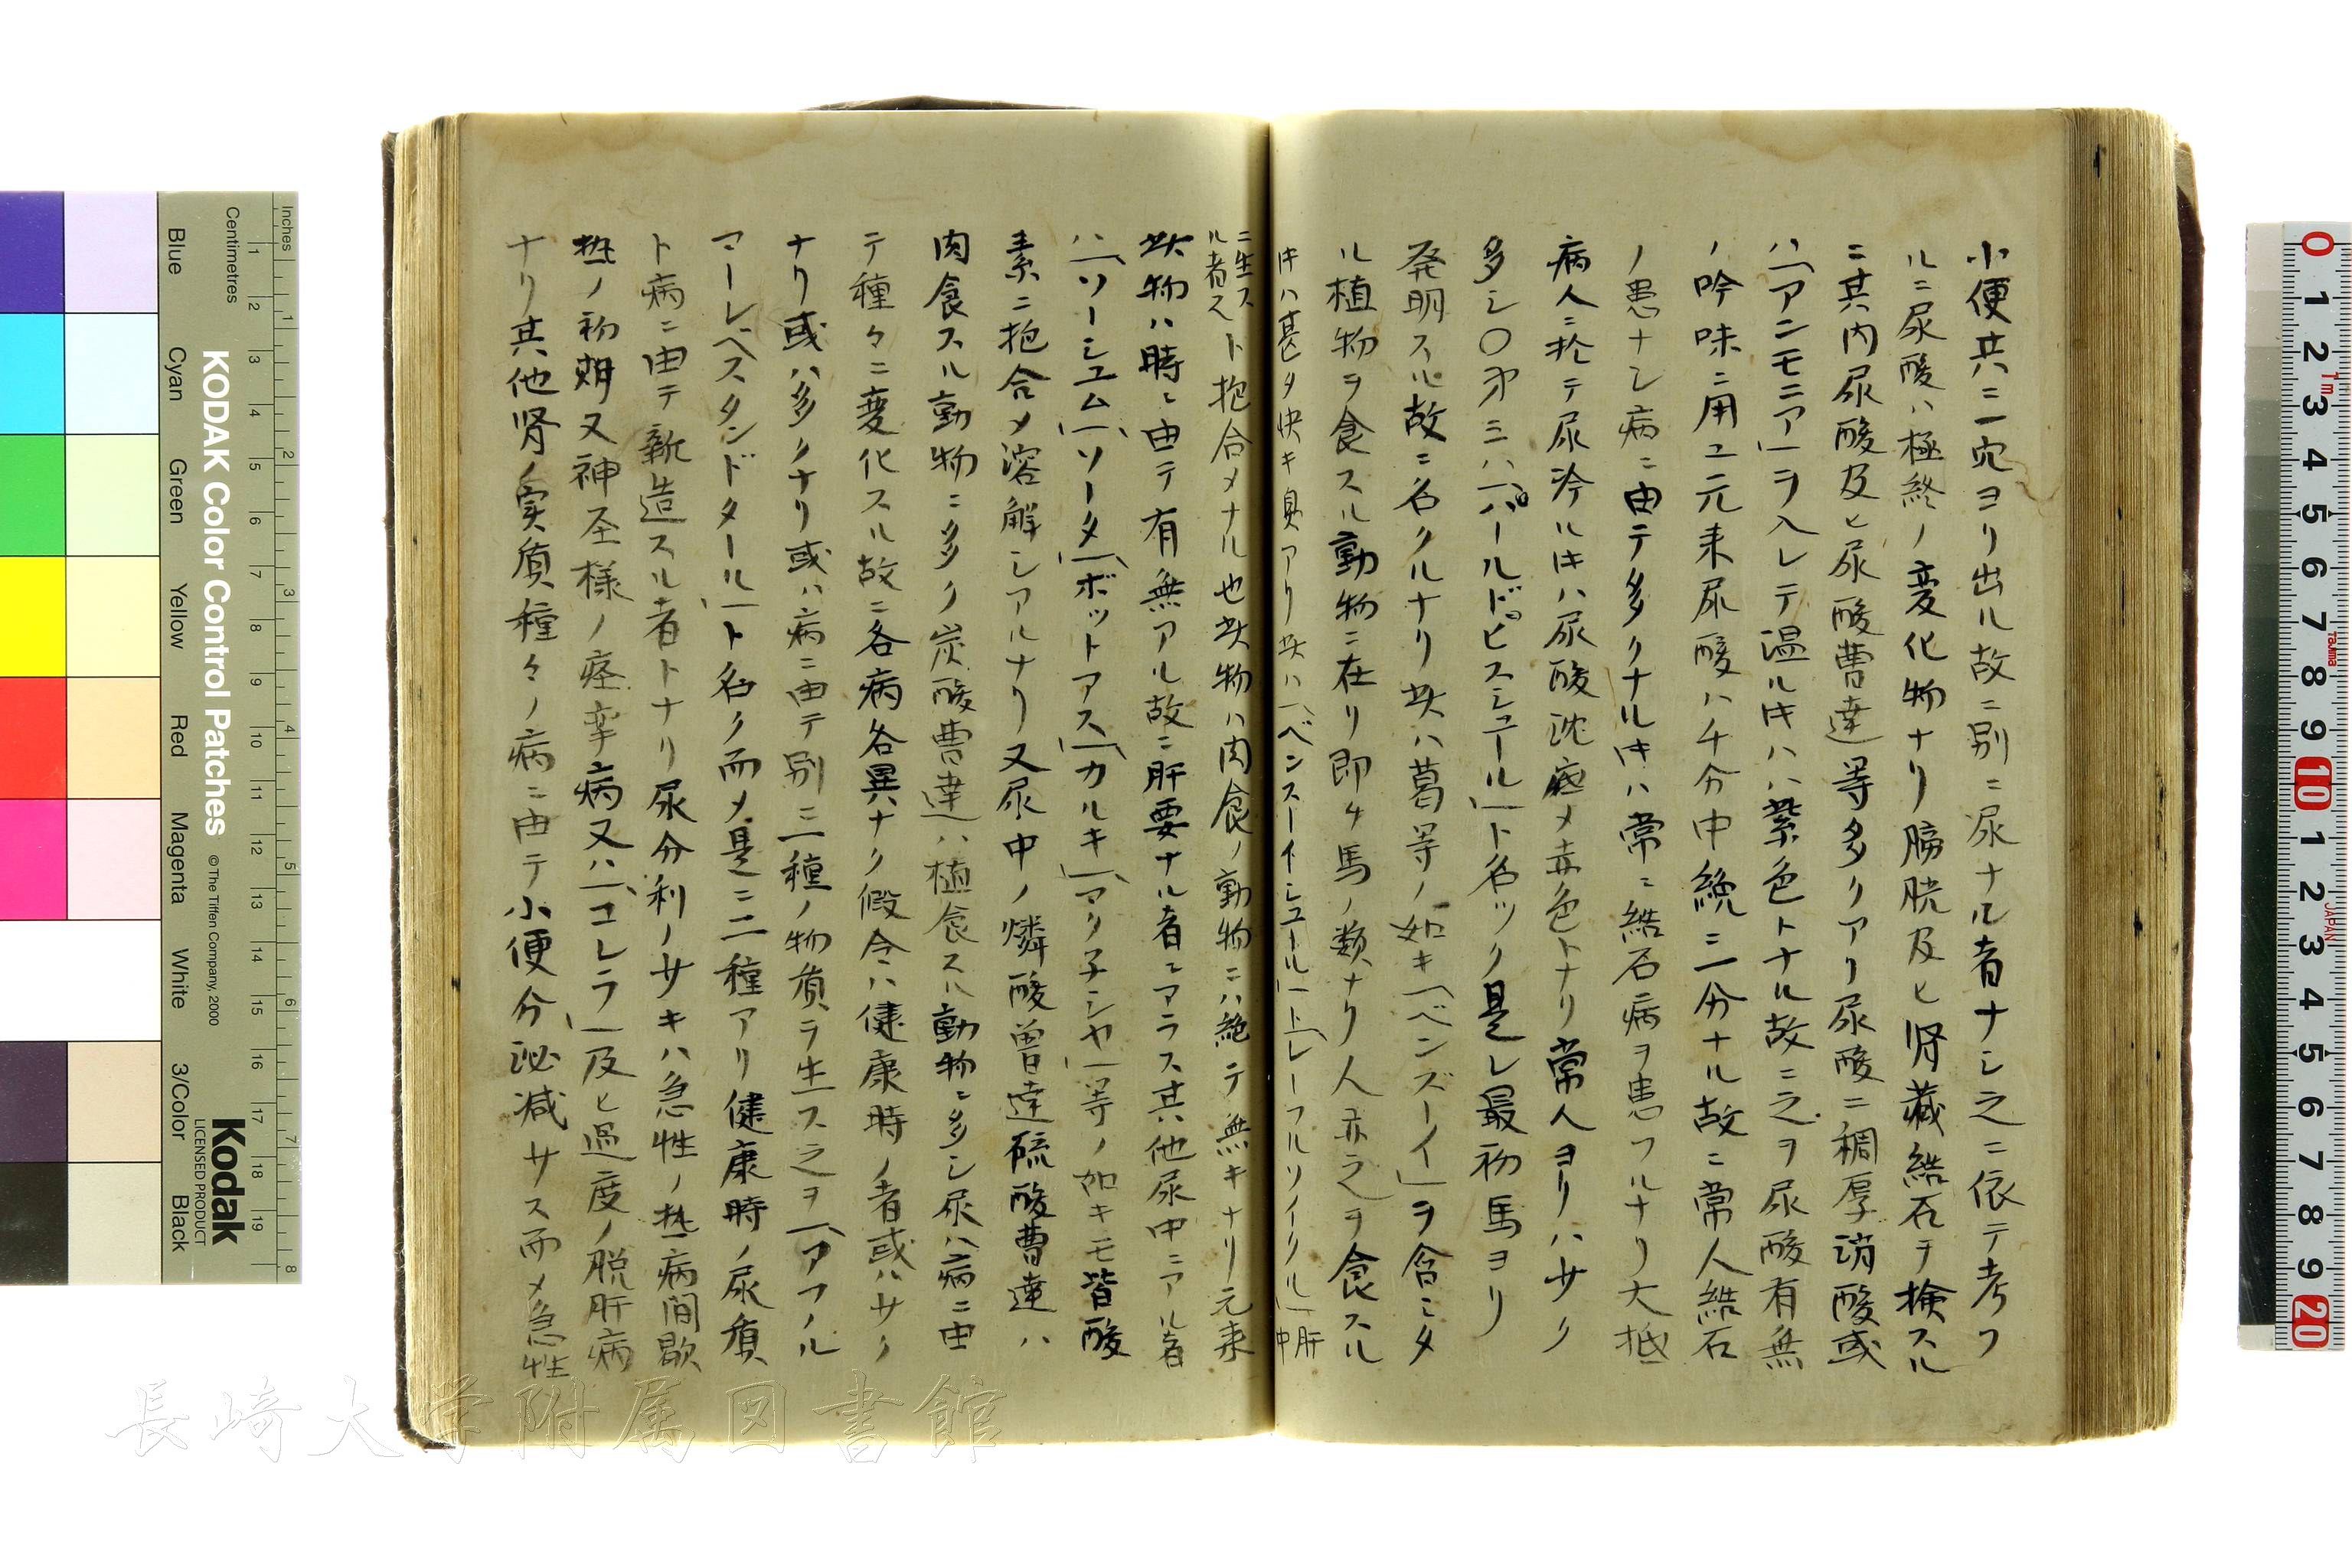 小便共ニ一穴ヨリ出ル故ニ別ニ尿ナル者ナシ之ニ依テ考フ
ルニ尿酸ハ極終ノ変化物ナリ膀胱及ヒ腎蔵結石ヲ検スル
ニ其内尿酸及ヒ尿酸曹達等多クアリ尿酸ニ稠厚消酸或
ハ「アンモニア」ヲ入レテ温ルキハハ紫色トナル故ニ之ヲ尿酸有無
ノ吟味ニ用ユ元来尿酸ハ千分中纔ニ一分ナル故ニ常人結石
ノ患ナシ病ニ由テ多クナルキハ常ニ結石病ヲ患フルナリ大抵
病人ニ於テ尿冷ルキハ尿酸沈底メ赤色トナリ常人ヨリハサク
多シ〇第三ハ「パールドピスシュール」ト名ツク是レ最初馬ヨリ
発明スル故ニ名クルナリ此ハ葛等ノ如キ「ベンズーイ」ヲ含ミタ
ル植物ヲ食スル動物ニ在リ即チ馬ノ類ナリ人亦之ヲ食スル
キハ甚タ快キ臭アリ此ハ「ベンスーイシュール」ト「レーフルソイクル」肝中
ニ生スル者ス ト抱合メナル也此物ハ肉食ノ動物ニハ絶テ無キナリ元来
此物ハ時ニ由テ有無アル故ニ肝要ナル者ニアラス其他尿中ニアル者
ハ「ソーシュム」「ソーダ」「ボットアス」「カルキ」「マク子シヤ」等ノ如キモ皆酸
素ニ抱合メ溶解シアルナリ又尿中ノ燐酸曽達硫酸曹達ハ
肉食スル動物ニ多ク炭酸曹達ハ植食スル動物ニ多シ尿ハ病ニ由
テ種々ニ変化スル故ニ各病各異ナク假令ハ健康時ノ者或ハサク
ナリ或ハ多クナリ或ハ病ニ由テ別ニ一種ノ物質ヲ生ス之ヲ「アフノル
マーレベスタンドタール」ト名ク而メ是ニ二種アリ健康時ノ尿質
ト病ニ由テ新造スル者トナリ尿分利ノサキハ急性ノ热病間歇
热ノ初期又神圣様ノ痙挛病又ハ「コレラ」及ヒ過度ノ脱肝病
ナリ其他腎ノ実質種々ノ病ニ由テ小便分泌减サス而メ急性
長崎大学附属図書館
KODAK Color Control Patches
© The Tiffen Company, 2000
Kodak
LICENSED PRODUCT
Inches
Centimetres
Blue
Cyan
Green
Yellow
Red
Magenta
White
3/Color
Black